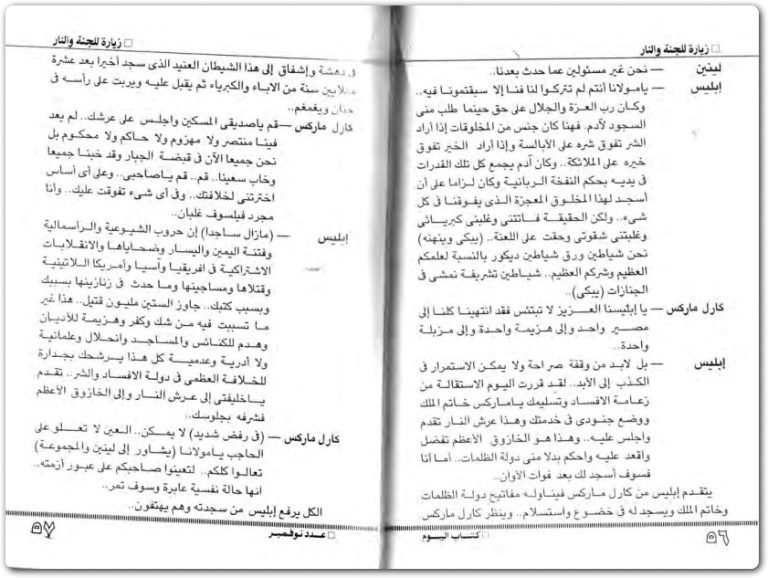 □ زيارة للجنة والنار
لينين — نحن غير مسئولين عما حدث بعدنا..
إبليس — يامولانا أنتم لم تتركوا لنا فنا إلا سبقتمونا فيه..
وكان رب العزة والجلال على حق حينما طلب منى
السجود لآدم. فهنا كان جنس من المخلوقات إذا أراد
الشر تفوق شره على الأبالسة وإذا أراد الخير تفوق
خيره على الملائكة.. وكان آدم يجمع كل تلك القدرات
فى يديه بحكم النفخة الربانية وكان لزاما على أن
أسجد لهذا المخلوق المعجزة الذى يفوقنا فى كل
شىء.. ولكن الحقيقة فاتتنى وغلبنى كبريائى
وغلبتنى شقوتى وحقت على اللعنة.. (يبكى وينهنه)
نحن شياطين ورق شياطين ديكور بالنسبة لعلمكم
العظيم وشركم العظيم.. شياطين تشريفة نمشى فى
الجنازات (يبكى)..
كارل ماركس — يا إبليسنا العزيز لا تبتئس فقد انتهينا كلنا إلى
مصير واحد وإلى هزيمة واحدة وإلى مزبلة
واحدة..
إبليس — بل لابد من وقفة صراحة ولا يمكن الاستمرار فى
الكذب إلى الأبد.. لقد قررت اليوم الاستقالة من
زعامة الافساد وتسليمك ياماركس خاتم الملك
ووضع جنودى فى خدمتك وهذا عرش النار تقدم
واجلس عليه.. وهذا هو الخازوق الأعظم تفضل
واقعد عليه واحكم بدلا منى دولة الظلمات.. أما أنا
فسوف أسجد لك بعد فوات الأوان..
يتقدم إبليس من كارل ماركس فيناوله مفاتيح دولة الظلمات
وخاتم الملك ويسجد له فى خضوع واستسلام.. وينظر كارل ماركس
٥٦ □ كتاب اليوم
□ زيارة للجنة والنار
فى دهشة وإشفاق إلى هذا الشيطان العنيد الذى سجد أخيرا بعد عشرة
ملايين سنة من الاباء والكبرياء ثم يقبل عليه ويربت على رأسه فى
حنان ويغمغم..
كارل ماركس — قم ياصديقى المسكين واجلس على عرشك.. لم يعد
فينا منتصر ولا مهزوم ولا حاكم ولا محكوم بل
نحن جميعا الآن فى قبضة الجبار وقد خبنا جميعا
وخاب سعينا.. قم.. قم ياصاحبى.. وعلى أى أساس
اخترتنى لخلافتك.. وفى أى شىء تفوقت عليك.. وأنا
مجرد فيلسوف غلبان..
إبليس — (مازال ساجدا) إن حروب الشيوعية والرأسمالية
وفتنة اليمين واليسار وضحاياها والانقلابات
الاشتراكية فى افريقيا وآسيا وأمريكا اللاتينية
وقتلاها ومساجينها وما حدث فى زنازينها بسببك
وبسبب كتبك.. جاوز الستين مليون قتيل.. هذا غير
ما تسببت فيه من شك وكفر وهزيمة للأديان
وهدم للكنائس والمساجد وانحلال وعلمانية
ولا أدرية وعدمية كل هذا يرشحك بجدارة
للخلافة العظمى فى دولة الافساد والشر.. تقدم
ياخليفتى إلى عرش النار وإلى الخازوق الأعظم
فشرفه بجلوسك..
كارل ماركس — (فى رفض شديد) لا يمكن.. العين لا تعلو على
الحاجب يامولانا (يشاور إلى لينين والمجموعة)
تعالوا كلكم.. لتعينوا صاحبكم على عبور أزمته..
انها حالة نفسية عابرة وسوف تمر..
الكل يرفع إبليس من سجدته وهم يهتفون..
□ عدد نوفمبر ٥٧